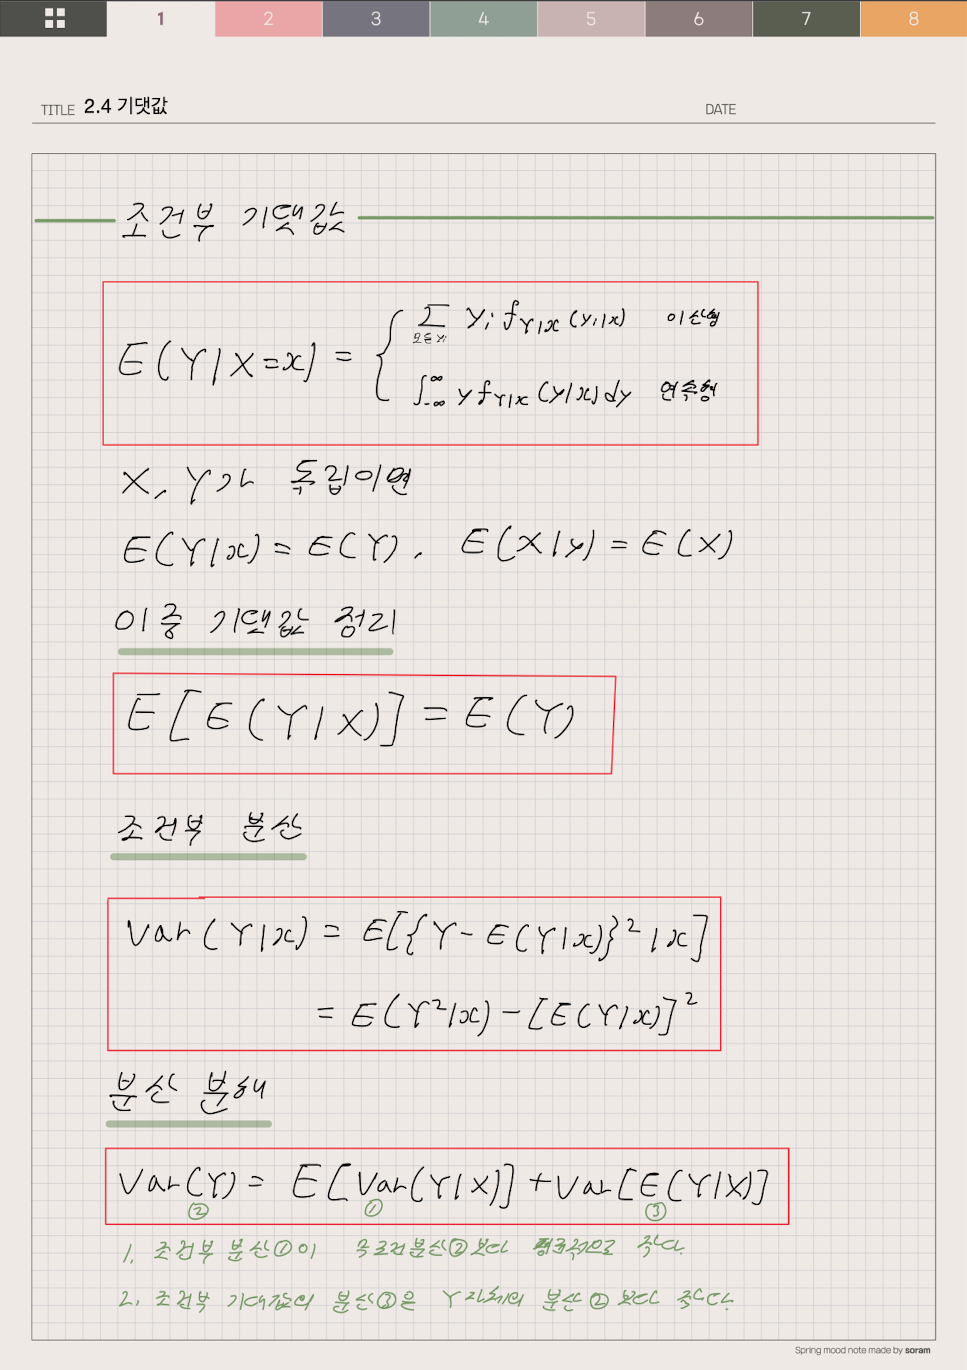 1 2 3 4 5 6 7 8
TITLE 2.4 기댓값 DATE
조건부 기댓값
E(Y|X=x) = { ∑ yᵢ f_{Y|X} (yᵢ|x) 이산형
모든 yᵢ
∫_{-∞}^{∞} y f_{Y|X} (y|x) dy 연속형
X, Y가 독립이면
E(Y|x) = E(Y), E(X|y) = E(X)
이중 기댓값 정리
E[E(Y|X)] = E(Y)
조건부 분산
Var(Y|x) = E[{Y-E(Y|x)}²|x]
= E(Y²|x) - [E(Y|x)]²
분산 분해
Var(Y) = E[Var(Y|X)] + Var[E(Y|X)]
② ① ③
1. 조건부 분산①이 무조건분산②보다 평균적으로 작다.
2. 조건부 기대값의 분산③은 Y 자체의 분산②보다 작다.
Spring mood note made by soram